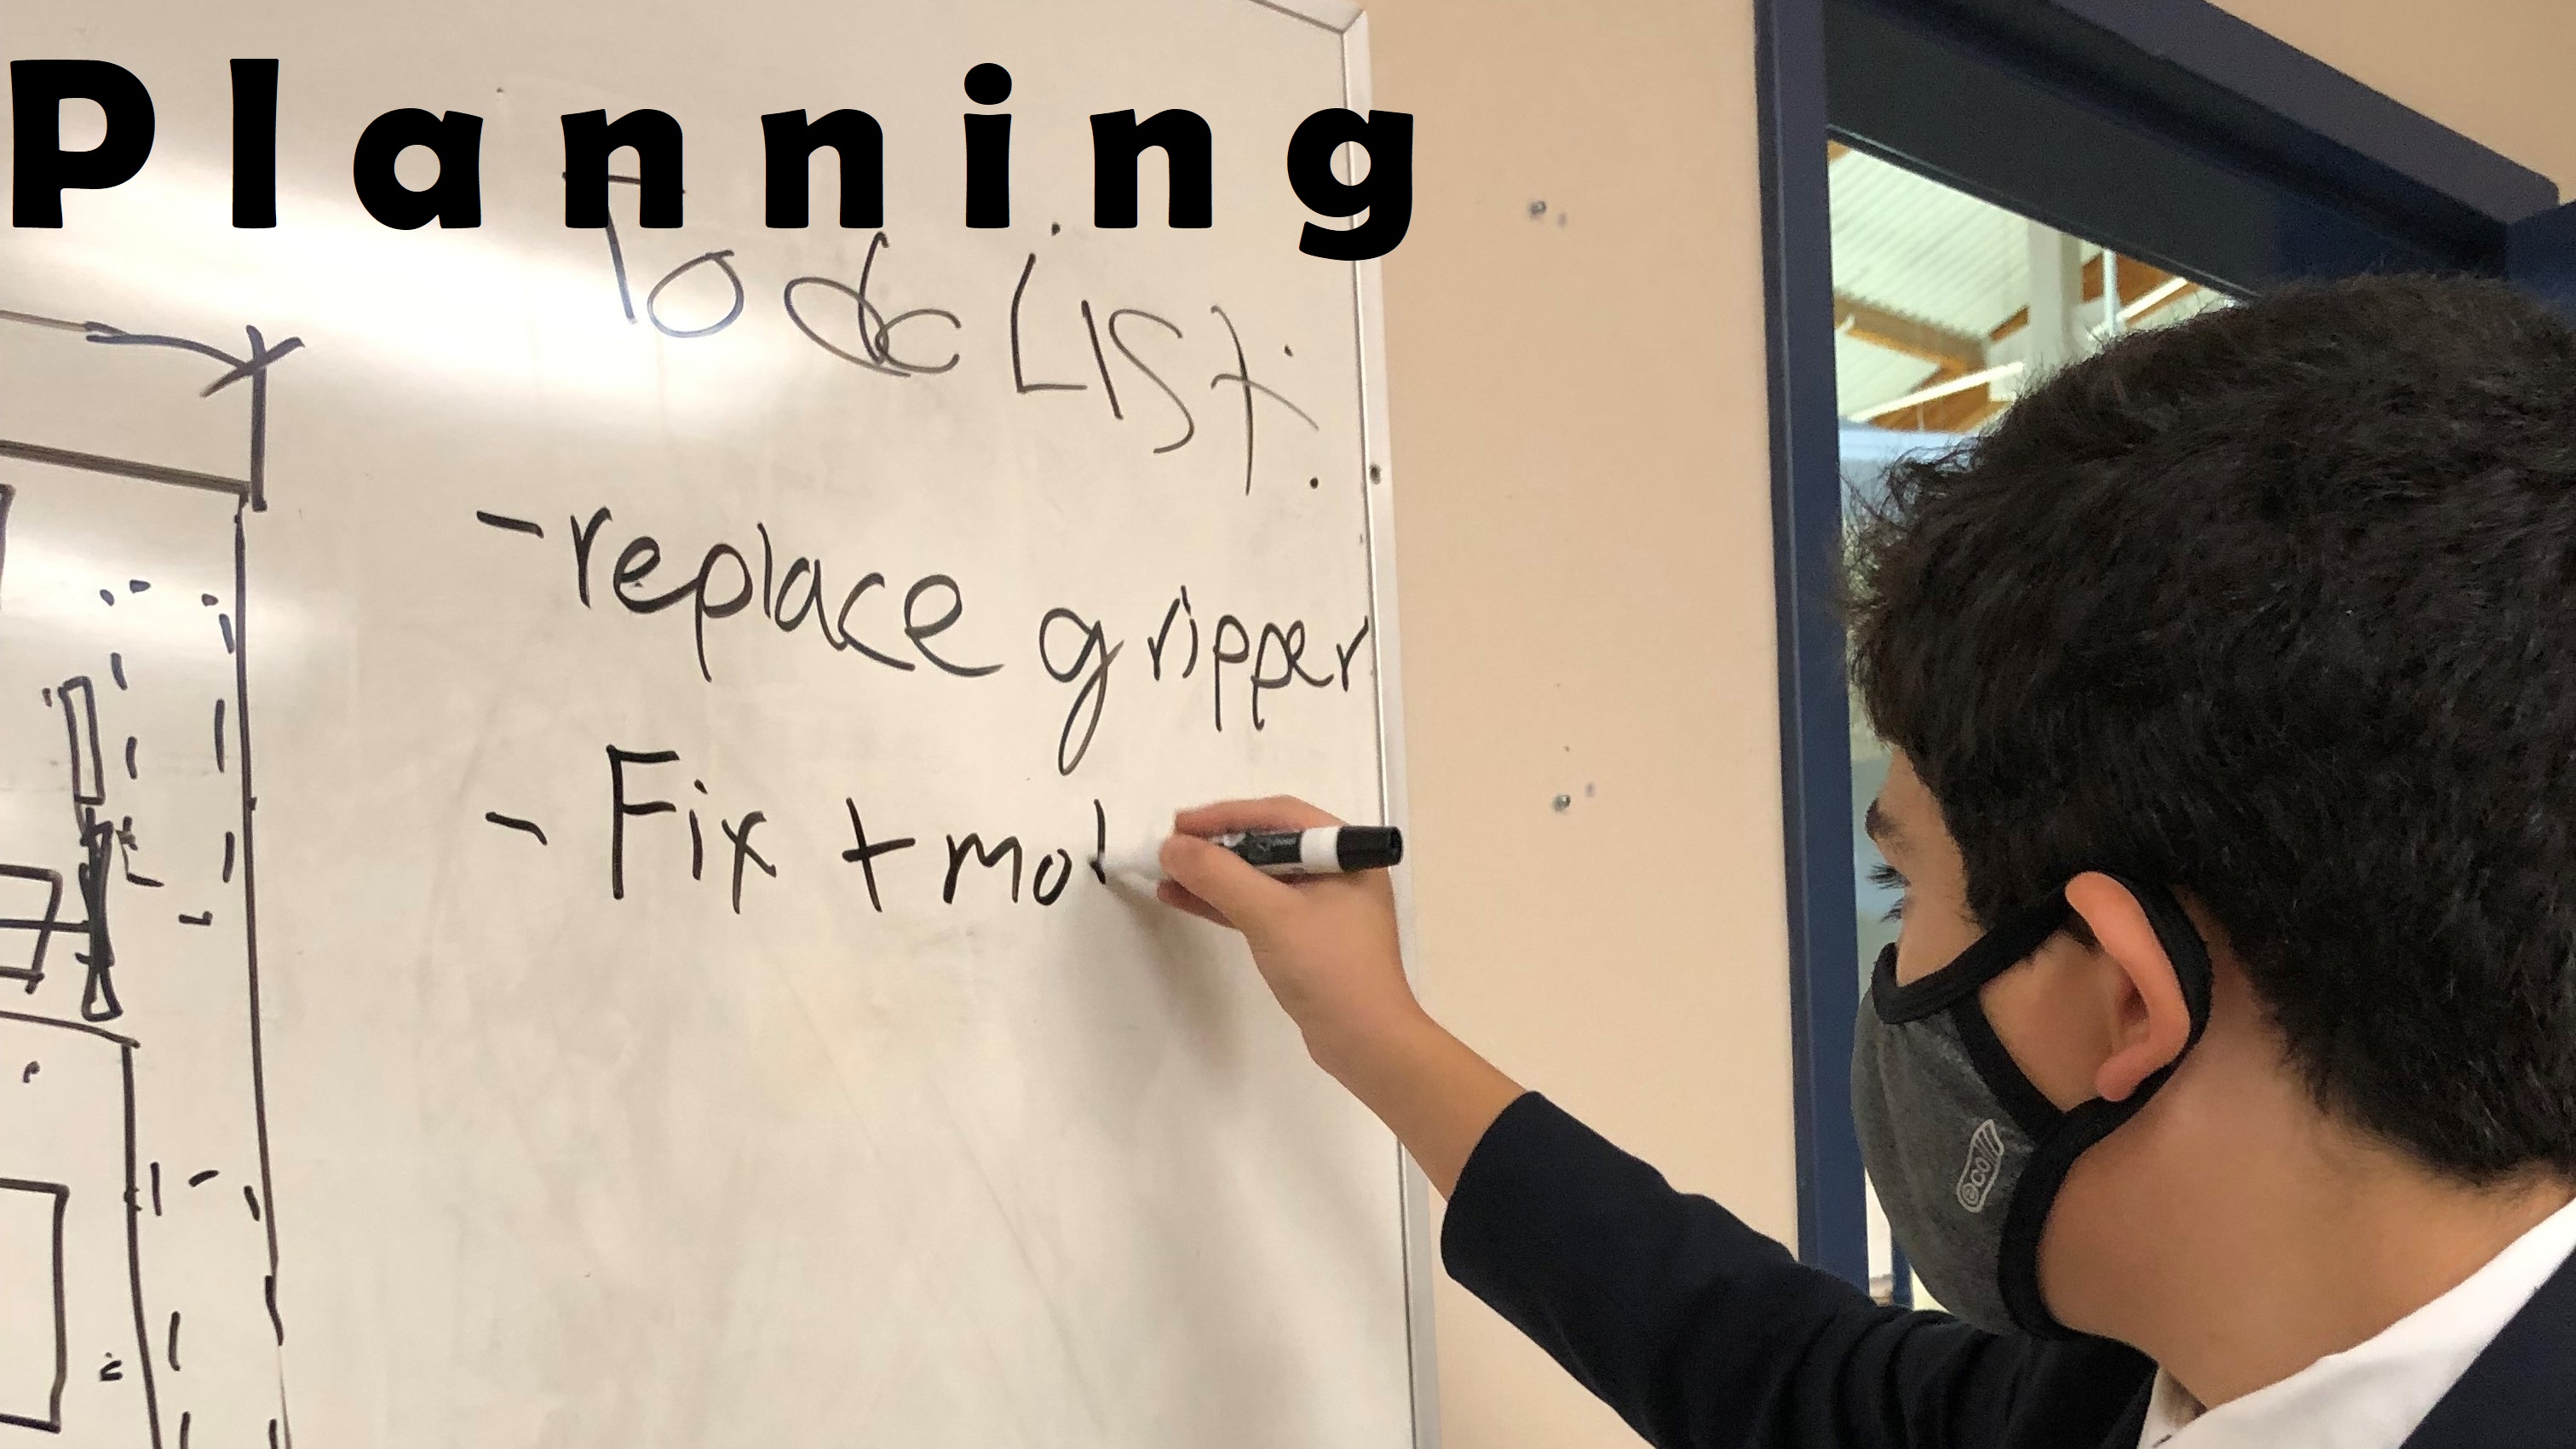 Planning
To do List:
- replace gripper
- Fix + mo
eco